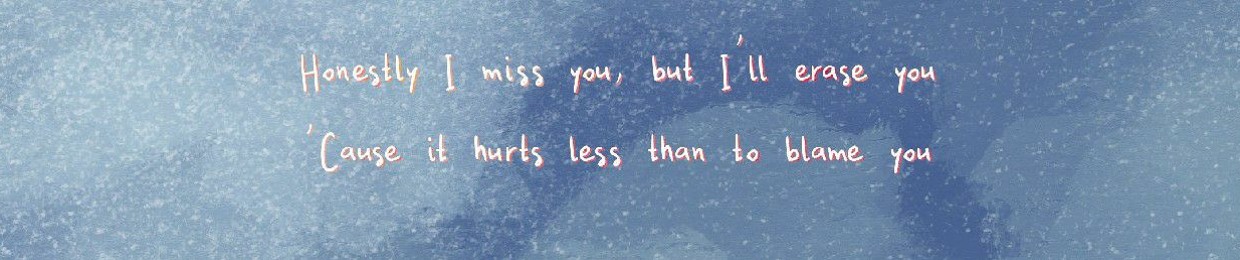 Honestly I miss you, but I'll erase you
'Cause it hurts less than to blame you